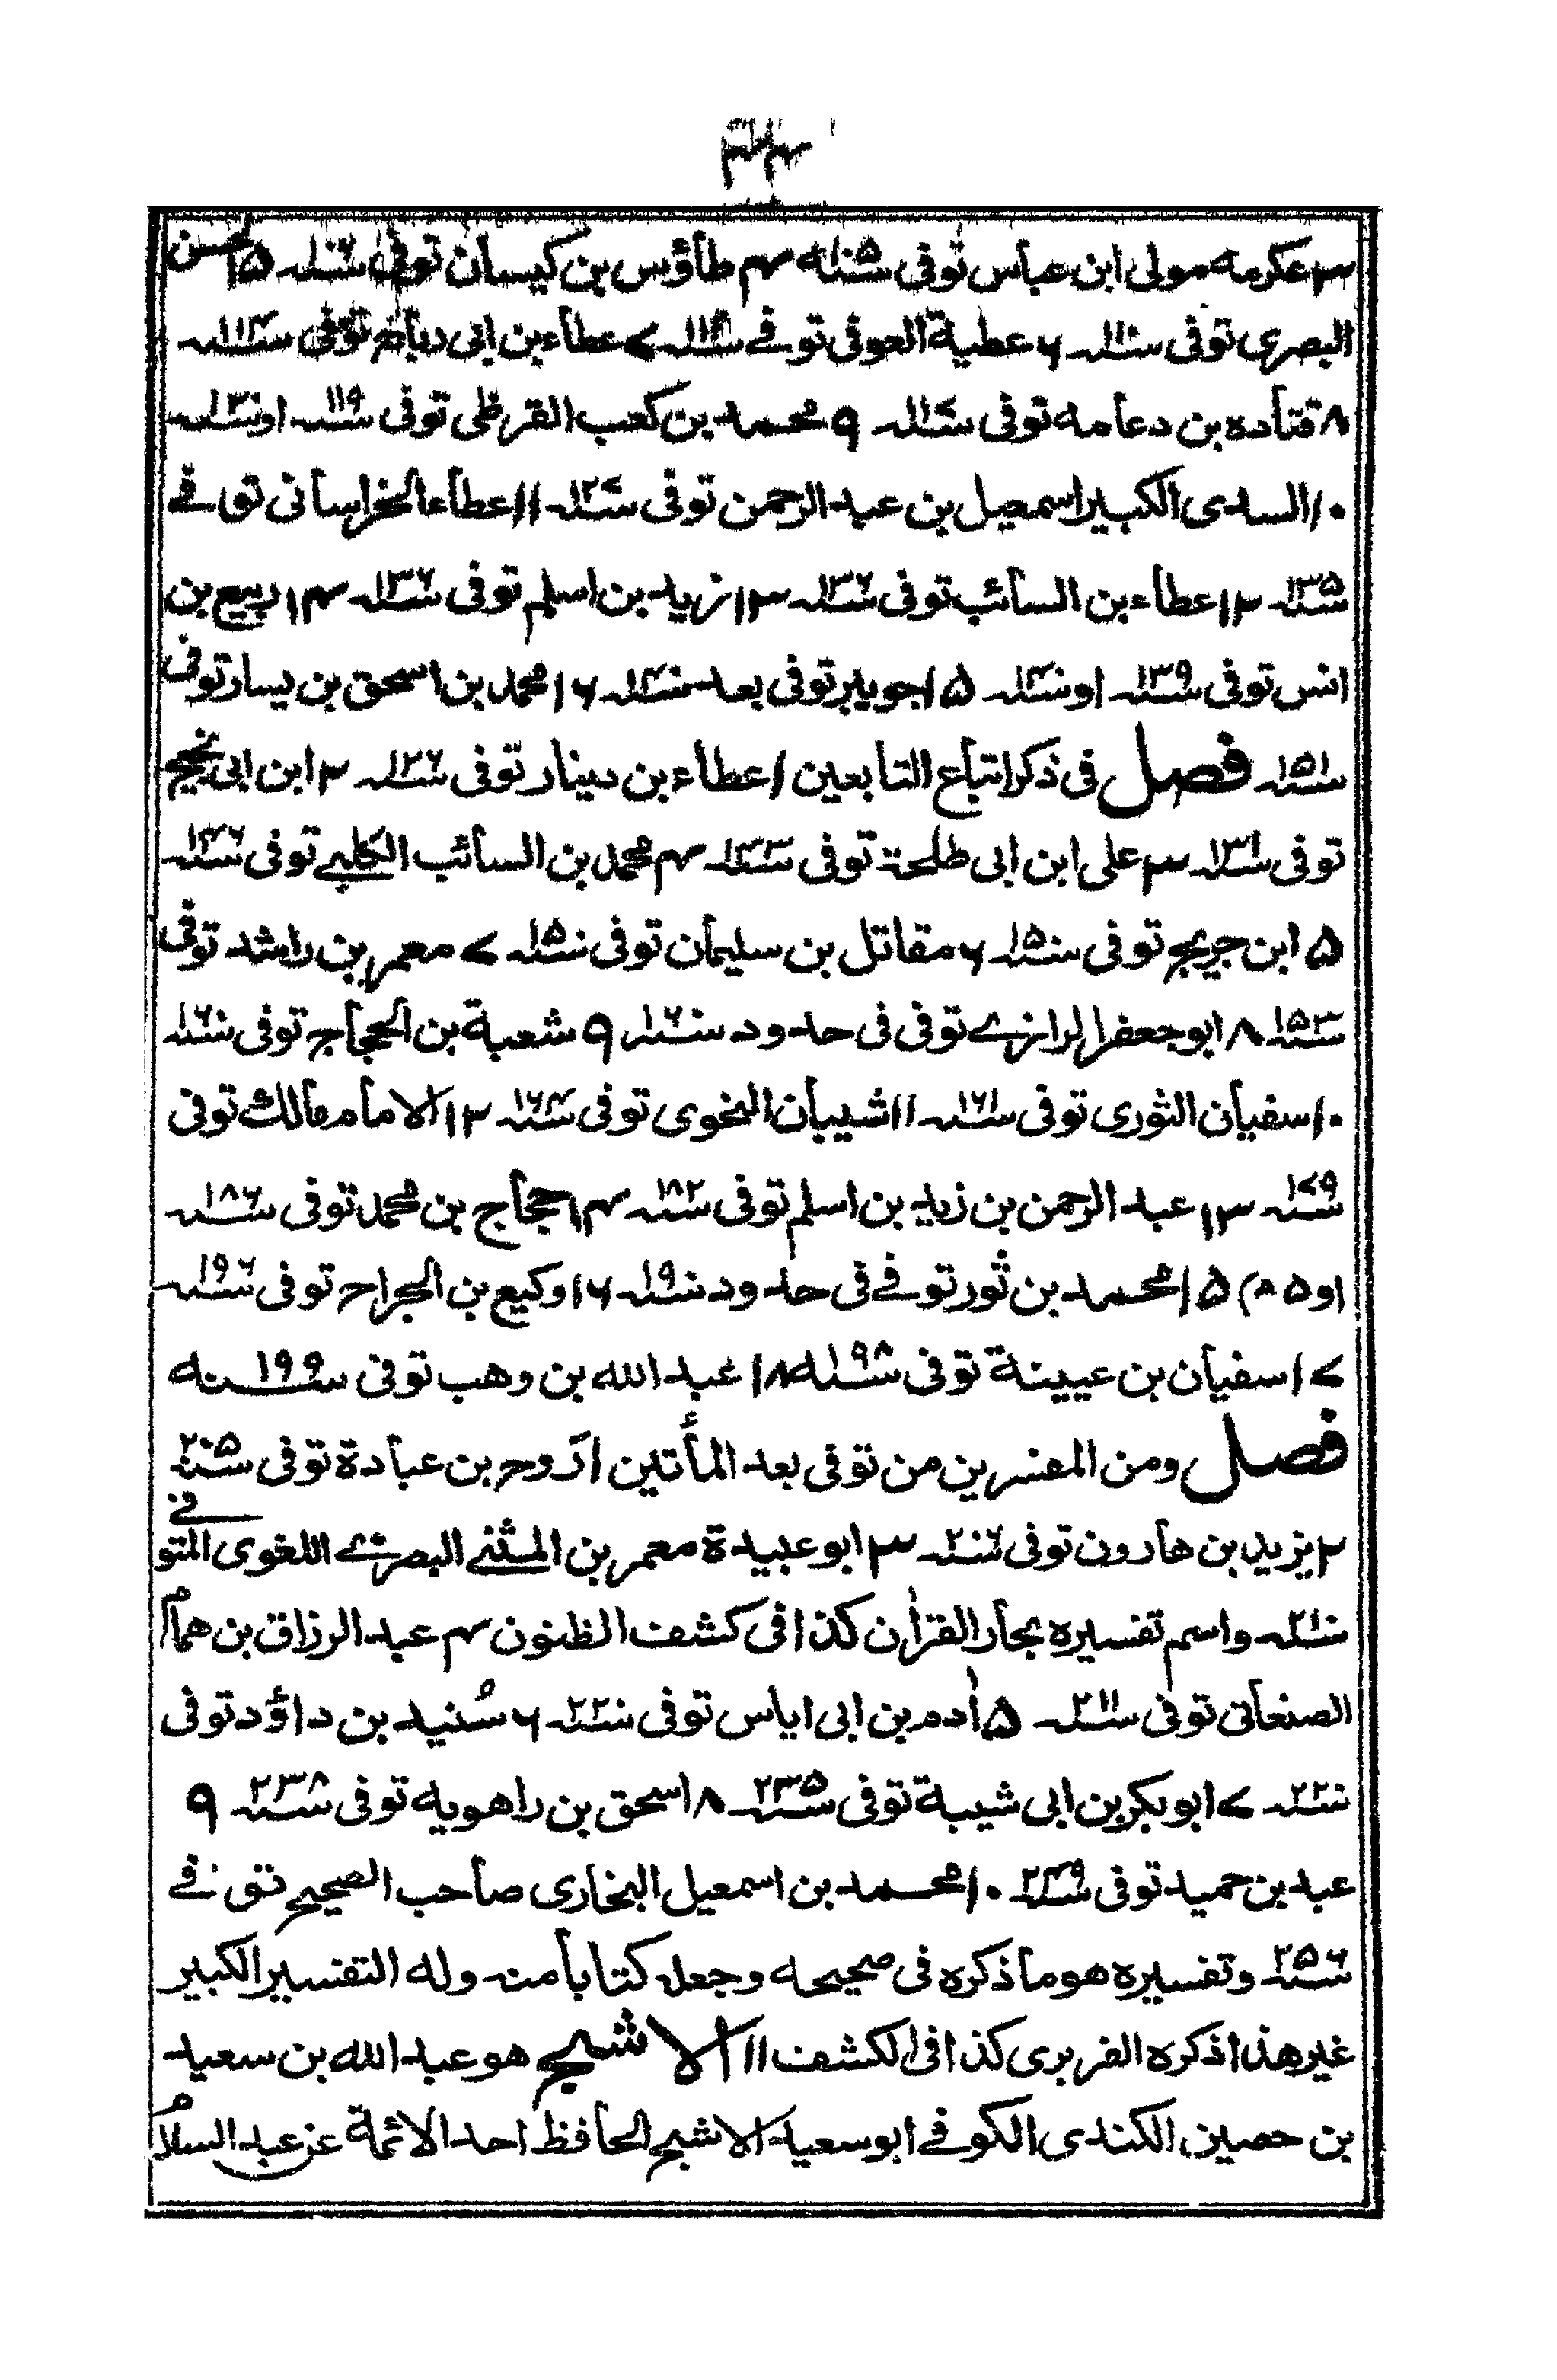 ۳ عكرمه مولى ابن عباس توفى سنه ۱۰۵ ۴ طاؤس بن كيسان توفى سنه ۱۰۶ ۵ الحسن
البصرى توفى سنه ۱۱۰ ۶ عطية العوفى توفے سنه ۱۱۱ ۷ عطاء بن ابى رباح توفى سنه ۱۱۴
۸ قتاده بن دعامه توفى سنه ۱۱۷ ۹ محمد بن كعب القرظى توفى سنه ۱۱۹ او سنه ۱۲۰
۱۰ السدى الكبير اسمعيل بن عبد الرحمن توفى سنه ۱۲۷ ۱۱ عطاء الخراسانى توفے
سنه ۱۳۵ ۱۲ عطاء بن السائب توفى سنه ۱۳۶ ۱۳ زيد بن اسلم توفى سنه ۱۳۶ ۱۴ ربيع بن
انس توفى سنه ۱۳۹ او سنه ۱۴۰ ۱۵ جويبر توفى بعد سنه ۱۴۰ ۱۶ محمد بن اسحق بن يسار توفى
سنه ۱۵۱ فصل فى ذكر اتباع التابعين ۱ عطاء بن دينار توفى سنه ۱۲۶ ۲ ابن ابى نجيح
توفى سنه ۱۳۱ ۳ على ابن ابى طلحة توفى سنه ۱۴۳ ۴ محمد بن السائب الكلبے توفى سنه ۱۴۶
۵ ابن جريج توفى سنه ۱۵۰ ۶ مقاتل بن سليمان توفى سنه ۱۵۰ ۷ معمر بن راشد توفى
سنه ۱۵۳ ۸ ابو جعفر الرازے توفى فى حدود سنه ۱۶۰ ۹ شعبة بن الحجاج توفى سنه ۱۶۰
۱۰ سفيان الثورى توفى سنه ۱۶۱ ۱۱ شيبان النحوى توفى سنه ۱۶۴ ۱۲ الامام مالك توفى
سنه ۱۷۹ ۱۳ عبد الرحمن بن زيد بن اسلم توفى سنه ۱۸۲ ۱۴ حجاج بن محمد توفى سنه ۱۸۶
او ۲۰۵ ۱۵ محمد بن ثور توفے فى حدود سنه ۱۹۰ ۱۶ وكيع بن الجراح توفى سنه ۱۹۶
۱۷ سفيان بن عيينة توفى سنه ۱۹۸ ۱۸ عبد الله بن وهب توفى سنه ۱۹۹
فصل ومن المفسرين من توفى بعد المأتين ۱ روح بن عبادة توفى سنه ۲۰۵
۲ يزيد بن هارون توفى سنه ۲۰۶ ۳ ابو عبيدة معمر بن المثنے البصرے اللغوى المتوفے
سنه ۲۱۰ واسم تفسيره بجاز القرأن كذا فى كشف الظنون ۴ عبد الرزاق بن همام
الصنعانى توفى سنه ۲۱۱ ۵ أدم بن ابى اياس توفى سنه ۲۲۰ ۶ سُنيد بن داؤد توفى
سنه ۲۲۰ ۷ ابو بكر بن ابى شيبة توفى سنه ۲۳۵ ۸ اسحق بن راهويه توفى سنه ۲۳۸ ۹
عبد بن حميد توفى سنه ۲۴۹ ۱۰ محمد بن اسمعيل البخارى صاحب الصحيح توفے
سنه ۲۵۶ وتفسيره هو ما ذكره فى صحيحه وجعله كتابا منه وله التفسير الكبير
غير هذا ذكره الفربرى كذا فى الكشف ۱۱ الاشج هو عبد الله بن سعيد
بن حصين الكندى الكوفے ابو سعيد الاشج الحافظ احد الائمة عن عبد السلام